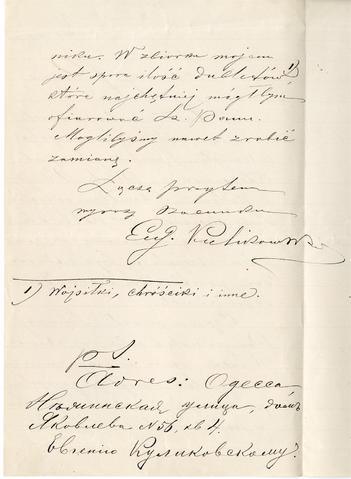 niku. W zbiorku mojem
jest spora ilość dubletów¹),
które najchętniej mógłbym
ofiarować Sz. Panu.
Moglibyśmy nawet zrobić
zamianę.
Łączę przytem
wyrazy szacunku
Eug. Kulikowski
1) Wojsiłki, chróściki i inne.
ps.
Adres: Одесса
Нѣжинская улица, домъ
Яковлева № 56, кв 4.
Евгенію Куликовскому.